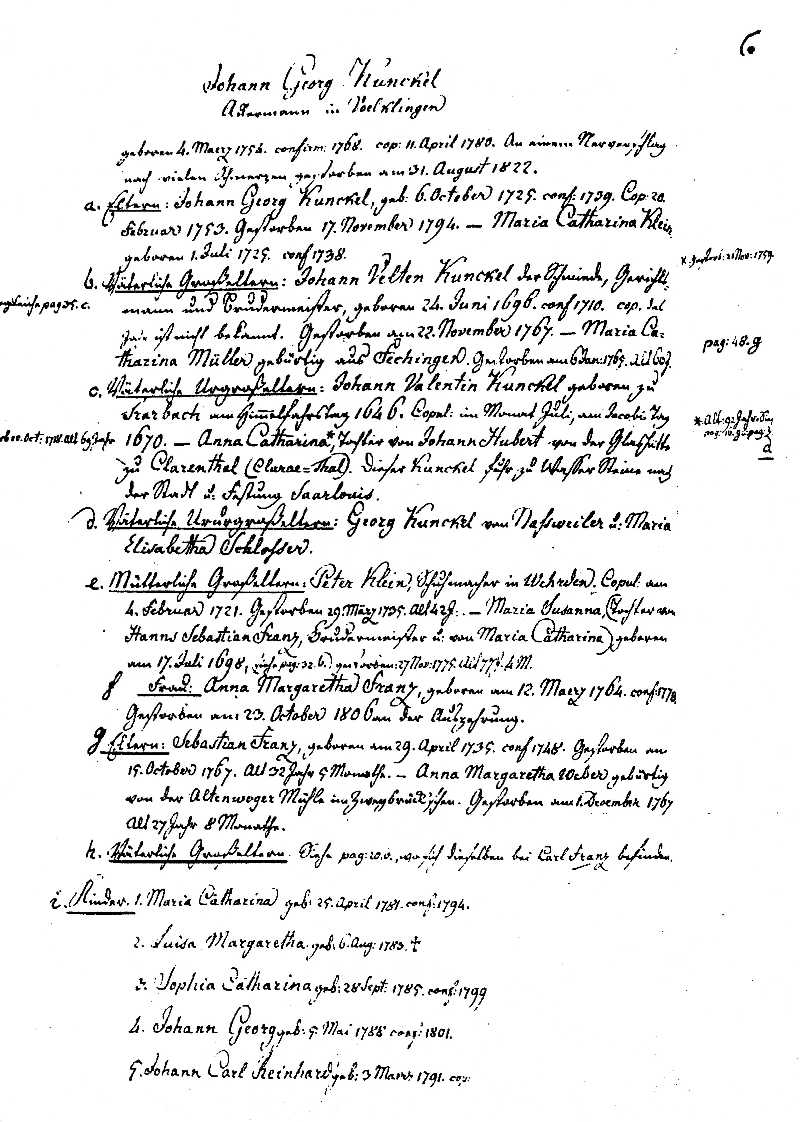 6.
Johann Georg Kunckel
Ackermann in Voelklingen
geboren 4. Maerz 1754. confirm: 1768. cop: 11. April 1780. An einem Nervenschlag
nach vielen Schmerzen gestorben am 31. August 1822.
a. Eltern: Johann Georg Kunckel, geb: 6. October 1725. conf: 1739. Cop: 20.
Februar 1753. Gestorben 17. November 1794. — Maria Catharina Klein
geboren 1. Juli 1725. conf 1738.
x. gestorb: 21 Nov: 1759.
b. Väterliche Großeltern: Johann Velten Kunckel der Schmiede, Gerichts-
pag 35. c.
mann und Brudermeister, geboren 24. Juni 1696. conf 1710. cop. das
Jahr ist nicht bekannt. Gestorben am 22. November 1767. — Maria Ca-
tharina Müller gebürtig aus Fechingen. Gestorben am 6 Jan: 1765. alt 60 J.
pag: 48. g
c. Väterliche Urgroßeltern: Johann Valentin Kunckel geboren zu
Trarbach am Himmelfahrtstag 1646. Copul: im Monat Juli, am Jacobi Tag
1670. — Anna Catharina*, Tochter von Johann Hubert von der Glashütte
* Alt: 92 Jahr
d
zu Clarenthal (Clarae=Thal). Dieser Kunckel fuhr zu Wasser Steine nach
der Stadt u: Festung Saarlouis.
d. Väterliche Ururgroßeltern: Georg Kunckel von Nassweiler u: Maria
Elisabetha Schlosser.
e. Mütterliche Großeltern: Peter Klein, Schuhmacher in Wehrden. Copul: am
4. Februar 1721. Gestorben 29. März 1735. Alt 42 J. — Maria Susanna (Tochter von
Hanns Sebastian Franz, Brudermeister u: von Maria Catharina) geboren
am 17. Juli 1698, (siehe pag: 32. b.) gestorben: 27 Nov: 1775. Alt 77 J. 4 M.
f Frau: Anna Margaretha Franz, geboren am 12. Maerz 1764. conf: 1778.
Gestorben am 23. October 1806 an der Auszehrung.
g Eltern: Sebastian Franz, geboren am 29. April 1735. conf 1748. Gestorben am
15. October 1767. Alt 32 Jahr 5 Monathe. — Anna Margaretha Weber gebürtig
von der Altenwoger Mühle im Zweybrück'schen. Gestorben am 1. December 1767
Alt 27 Jahr 8 Monathe.
h. Väterliche Großeltern. Siehe pag: 20. wo sich dieselben bei Carl Franz befinden.
i. Kinder. 1. Maria Catharina geb: 25. April 1781. conf: 1794.
2. Luisa Margaretha geb: 6. Aug: 1783. †
3. Sophia Catharina geb: 28 Sept: 1785. conf: 1799
4. Johann Georg geb: 5. Mai 1788 conf: 1801.
5. Johann Carl Reinhard geb: 3 Maerz 1791. cop: